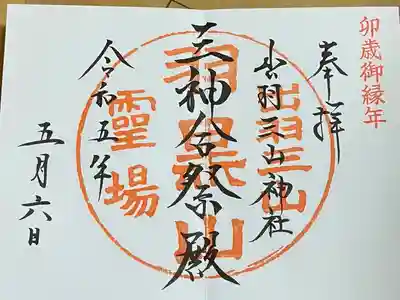 卯歳御縁年
奉拝
出羽三山神社
三神合祭殿
令和五年
五月六日
出羽三山
羽黒山
靈場